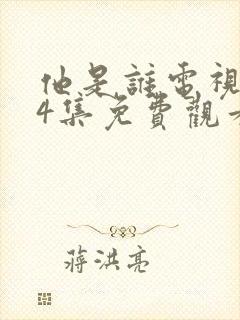 他是誰電視
4集免費觀看
蔣洪亮